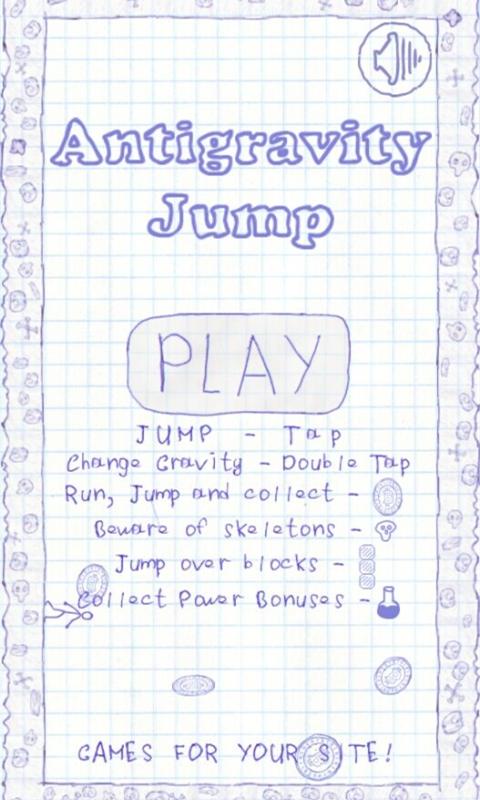 Antigravity
Jump
PLAY
JUMP - Tap
Change Gravity - Double Tap
Run, Jump and collect -
Beware of skeletons -
Jump over blocks -
Collect Power Bonuses -
GAMES FOR YOUR SITE!